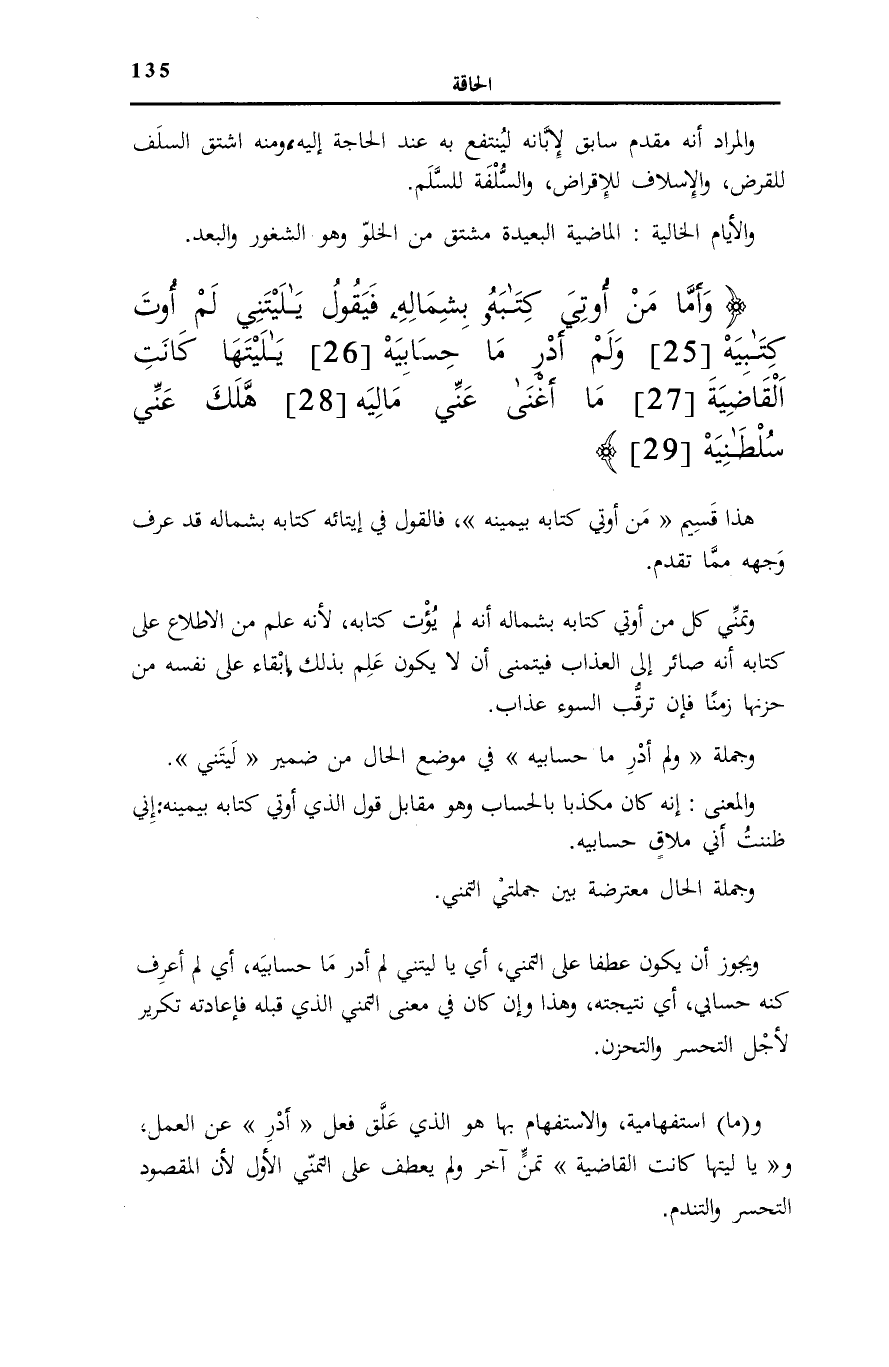 135
الحاقة
والمراد أنه مقدم سابق لإبَّانه ليُنتفع به عند الحاجة إليه،ومنه اشتق السلَف
للقرض، والإسلاف للإقراض، والسُّلْفَة للسَّلَم.
والأيام الخالية : الماضية البعيدة مشتق من الخلوّ وهو الشغور والبعد.
﴿ وَأَمَّا مَنْ أُوتِيَ كِتَٰبَهُۥ بِشِمَالِهِۦ فَيَقُولُ يَٰلَيْتَنِي لَمْ أُوتَ
كِتَٰبِيَهْ [25] وَلَمْ أَدْرِ مَا حِسَابِيَهْ [26] يَٰلَيْتَهَا كَانَتِ
اَلْقَاضِيَةَ [27] مَا أَغْنَىٰ عَنِّي مَالِيَه [28] هَّلَكَ عَنِّي
سُلْطَٰنِيَهْ [29] ﴾
هذا قَسِيم « مَن أوتي كتابه بيمينه »، فالقول في إيتائه كتابه بشماله قد عرف
وَجهه ممَّا تقدم.
وتمنِّي كل من أوتي كتابه بشماله أنه لم يُؤْت كتابه، لأنه علم من الاطلاع على
كتابه أنه صائر إلى العذاب فيتمنى أن لا يكون عَلِم بذلك إبْقاء على نفسه من
حزنها زمنًا فإن ترقُّب السوء عذاب.
وجملة « ولم أدْرِ ما حسابيه » في موضع الحال من ضمير « لَيتَني ».
والمعنى : إنه كان مكذبا بالحساب وهو مقابل قول الذي أوتي كتابه بيمينه:إِني
ظننتُ أني ملاقٍ حسابيه.
وجملة الحال معترضة بين جملتيْ التمني.
ويجوز أن يكون عطفا على التمني، أي يا ليتني لم أدر مَا حسابيَه، أي لم أعرِف
كنه حسابي، أي نتيجته، وهذا وإن كان في معنى التمني الذي قبله فإعادته تكرير
لأجْل التحسر والتحزن.
و(ما) استفهامية، والاستفهام بها هو الذي عَلَّق فعل « أدْرِ » عن العمل،
و« يا ليتها كانت القاضية » تمنٍّ آخر ولم يعطف على التمنّي الأول لأن المقصود
التحسر والتندم.